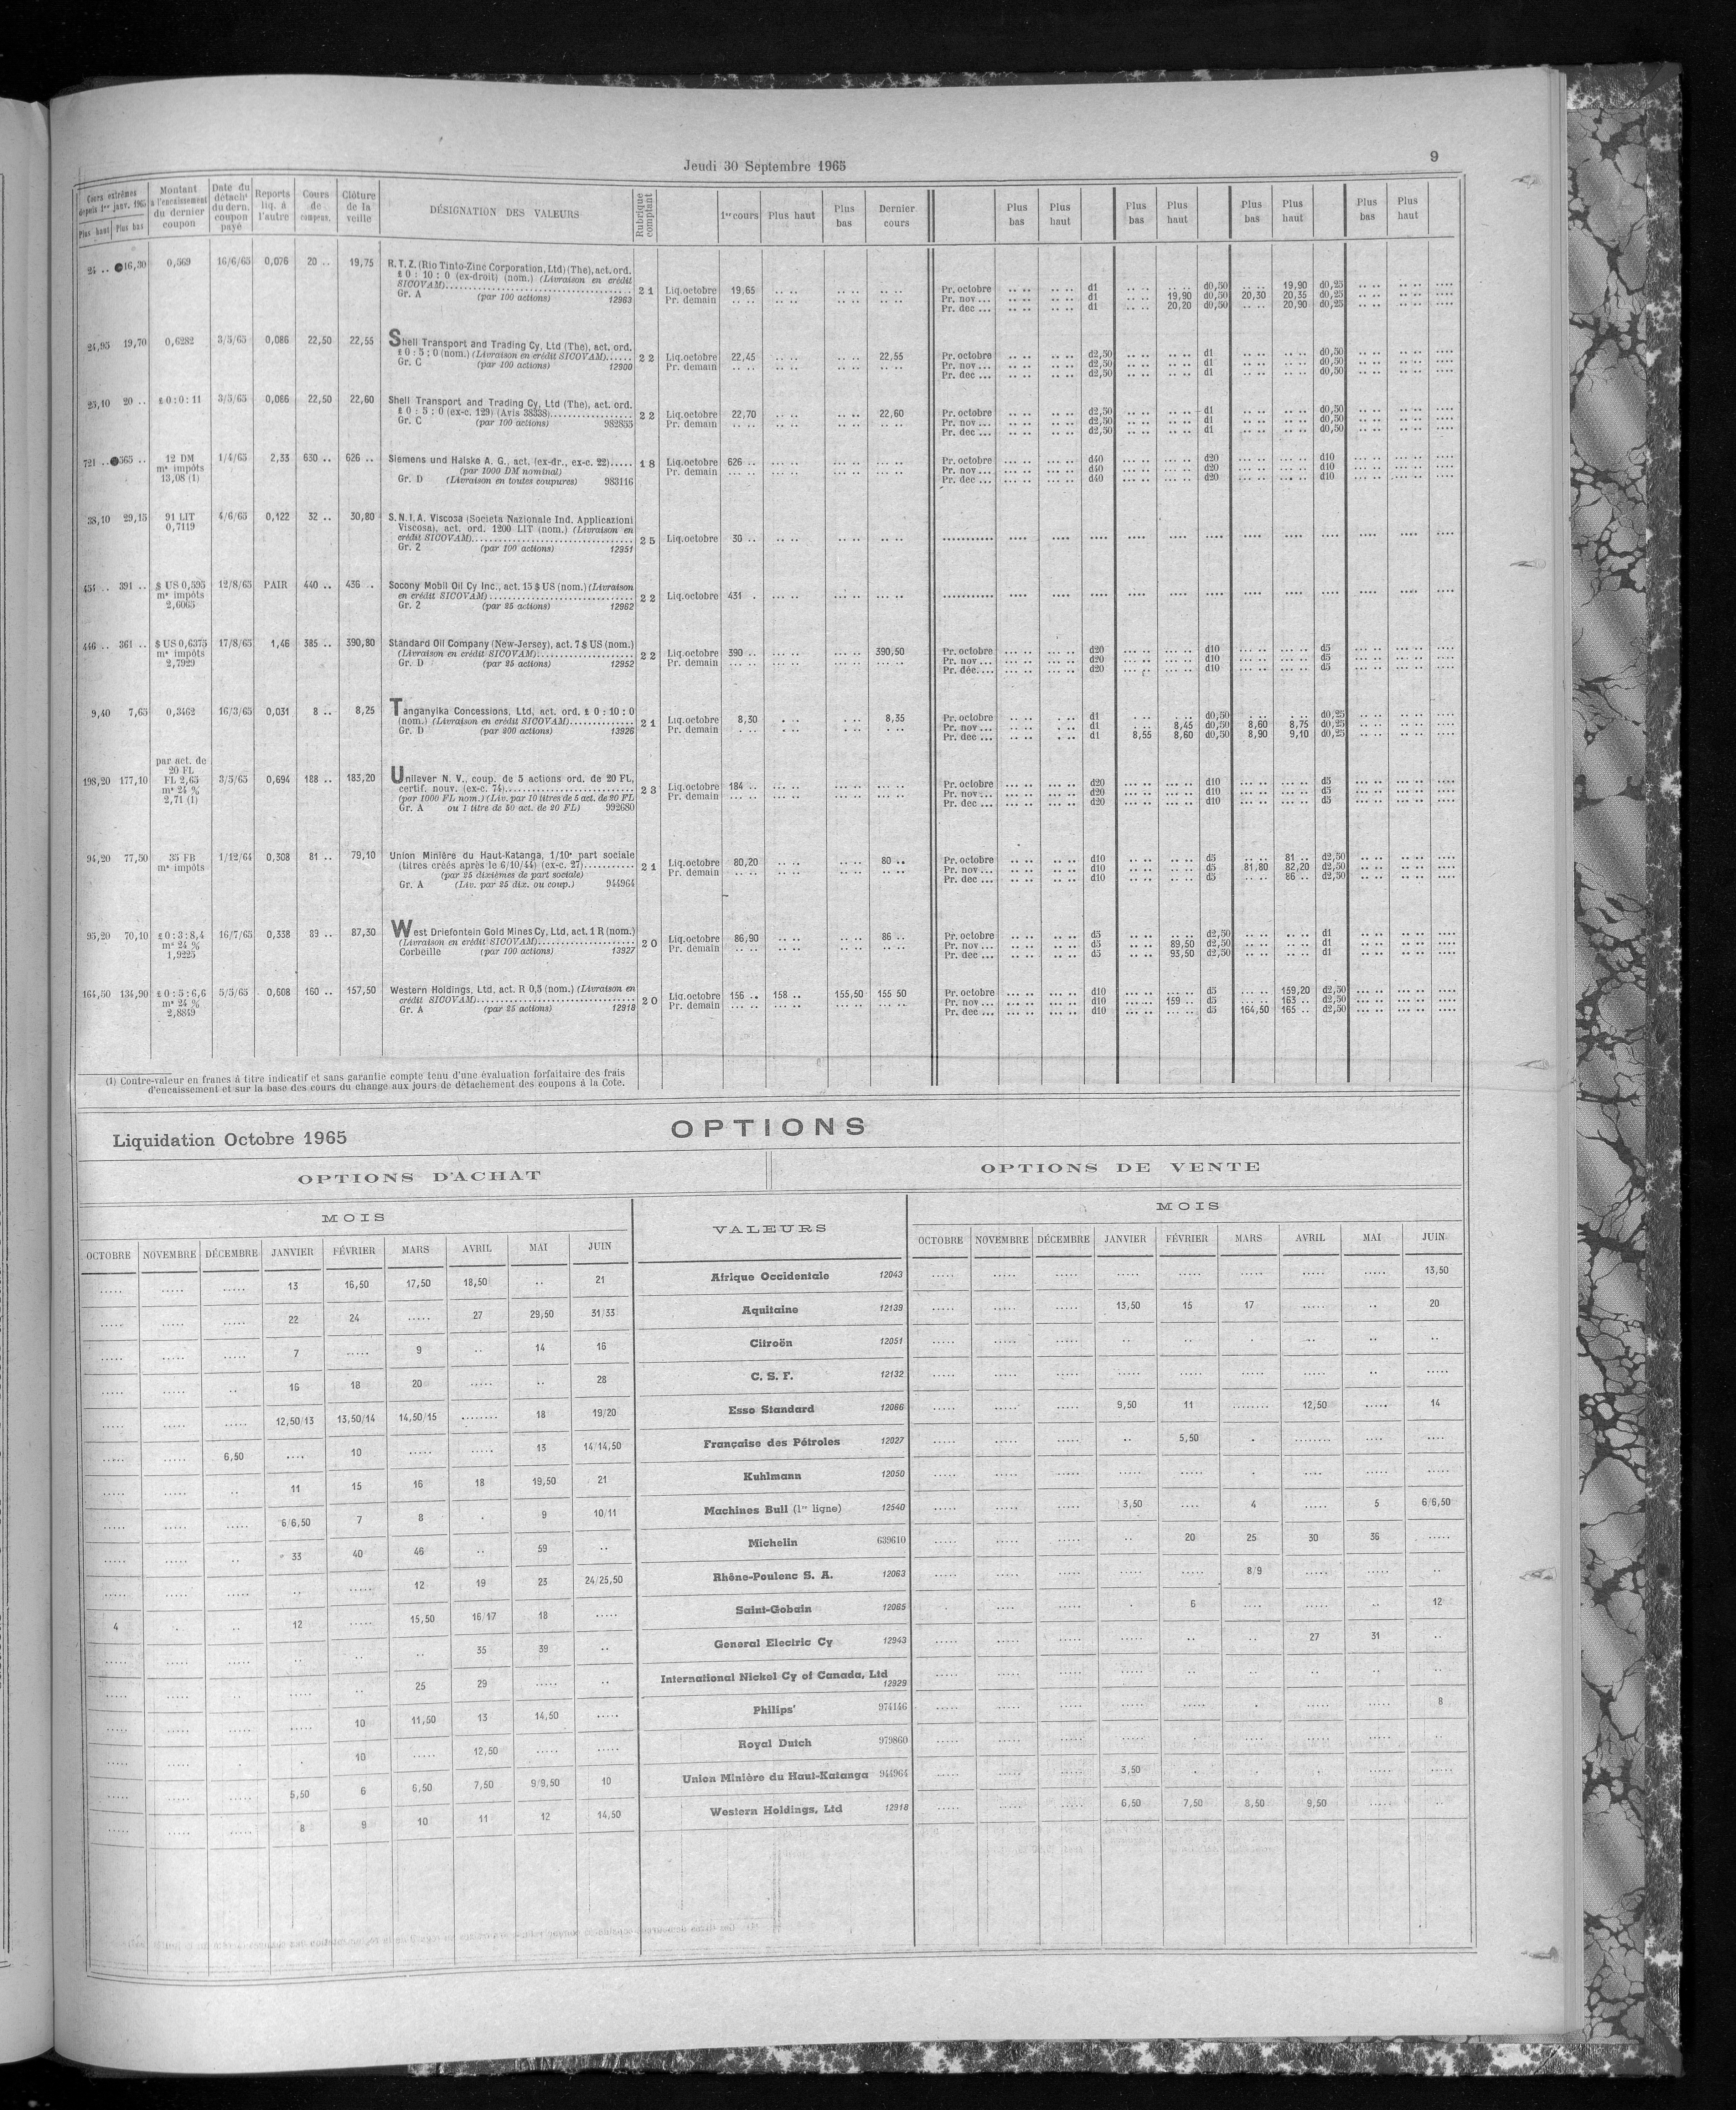 Jeudi 30 Septembre 1965
9
Cours extrêmes depuis 1er janv. 1965
Plus haut Plus bas
Montant à l'encaissement du dernier coupon
Date du détacht du dern. coupon payé
Reports liq. à l'autre
Cours de compens.
Clôture de la veille
DÉSIGNATION DES VALEURS
Rubrique comptant
1er cours Plus haut Plus bas Dernier cours
Plus bas Plus haut Plus bas Plus haut Plus bas Plus haut Plus bas Plus haut
24 .. 16,30 0,569 16/6/65 0,076 20 .. 19,75 R.T.Z. (Rio Tinto-Zinc Corporation, Ltd) (The), act. ord.
£ 0 : 10 : 0 (ex-droit) (nom.) (Livraison en crédit
SICOVAM) 21 Liq. octobre 19,65 .. .. .. .. .. .. Pr. octobre .. .. .. .. d1 .. .. .. .. d0,50 .. .. 19,90 d0,25
Gr. A (par 100 actions) 12963 Pr. demain .. .. .. .. .. .. .. .. Pr. nov ... .. .. .. .. d1 .. .. 19,90 d0,50 20,30 20,35 d0,25
Pr. dec ... .. .. .. .. d1 .. .. 20,20 d0,50 .. .. 20,90 d0,25
24,95 19,70 0,6282 3/5/65 0,086 22,50 22,55 Shell Transport and Trading Cy, Ltd (The), act. ord.
£ 0 : 5 : 0 (nom.) (Livraison en crédit SICOVAM) 22 Liq. octobre 22,45 .. .. .. .. 22,55 Pr. octobre .. .. .. .. d2,50 .. .. .. .. d1 .. .. .. .. d0,50
Gr. C (par 100 actions) 12900 Pr. demain .. .. .. .. .. .. .. .. Pr. nov ... .. .. .. .. d2,50 .. .. .. .. d1 .. .. .. .. d0,50
Pr. dec ... .. .. .. .. d2,50 .. .. .. .. d1 .. .. .. .. d0,50
25,10 20 .. £ 0 : 0 : 11 3/5/65 0,086 22,50 22,60 Shell Transport and Trading Cy, Ltd (The), act. ord.
£ 0 : 5 : 0 (ex-c. 129) (Avis 38338) 22 Liq. octobre 22,70 .. .. .. .. 22,60 Pr. octobre .. .. .. .. d2,50 .. .. .. .. d1 .. .. .. .. d0,50
Gr. C (par 100 actions) 982855 Pr. demain .. .. .. .. .. .. .. .. Pr. nov ... .. .. .. .. d2,50 .. .. .. .. d1 .. .. .. .. d0,50
Pr. dec ... .. .. .. .. d2,50 .. .. .. .. d1 .. .. .. .. d0,50
721 .. 565 .. 12 DM 1/4/65 2,33 630 .. 626 .. Siemens und Halske A. G., act. (ex-dr., ex-c. 22) 18 Liq. octobre 626 .. Pr. octobre d40 d20 d10
me impôts (par 1000 DM nominal) Pr. demain Pr. nov ... d40 d20 d10
13,08 (1) Gr. D (Livraison en toutes coupures) 983116 Pr. dec ... d40 d20 d10
38,10 29,15 91 LIT 4/6/65 0,122 32 .. 30,80 S.N.I.A. Viscosa (Societa Nazionale Ind. Applicazioni
0,7119 Viscosa), act. ord. 1200 LIT (nom.) (Livraison en
crédit SICOVAM) 25 Liq. octobre 30 ..
Gr. 2 (par 100 actions) 12951
451 .. 391 .. $ US 0,595 12/8/65 PAIR 440 .. 436 . Socony Mobil Oil Cy Inc., act. 15 $ US (nom.) (Livraison
me impôts en crédit SICOVAM) 22 Liq. octobre 431 .
2,6065 Gr. 2 (par 25 actions) 12962
446 .. 361 .. $ US 0,6375 17/8/65 1,46 385 .. 390,80 Standard Oil Company (New-Jersey), act. 7 $ US (nom.)
me impôts (Livraison en crédit SICOVAM) 22 Liq. octobre 390 .. 390,50 Pr. octobre d20 d10 d5
2,7929 Gr. D (par 25 actions) 12952 Pr. demain Pr. nov ... d20 d10 d5
Pr. déc.... d20 d10 d5
9,40 7,65 0,3462 16/3/65 0,031 8 .. 8,25 Tanganyika Concessions, Ltd, act. ord. £ 0 : 10 : 0
(nom.) (Livraison en crédit SICOVAM) 21 Liq. octobre 8,30 8,35 Pr. octobre d1 d0,50 d0,25
Gr. D (par 200 actions) 13926 Pr. demain Pr. nov ... d1 8,45 d0,50 8,60 8,75 d0,25
Pr. dec ... d1 8,55 8,60 d0,50 8,90 9,10 d0,25
par act. de
20 FL
198,20 177,10 FL 2,65 3/5/65 0,694 188 .. 183,20 Unilever N. V., coup. de 5 actions ord. de 20 FL,
me 24 % certif. nouv. (ex-c. 74) 23 Liq. octobre 184 .. Pr. octobre d20 d10 d5
2,71 (1) (par 1000 FL nom.) (Liv. par 10 titres de 5 act. de 20 FL Pr. demain Pr. nov ... d20 d10 d5
Gr. A ou 1 titre de 50 act. de 20 FL) 992680 Pr. dec ... d20 d10 d5
94,20 77,50 35 FB 1/12/64 0,308 81 .. 79,10 Union Minière du Haut-Katanga, 1/10e part sociale
me impôts (titres créés après le 6/10/44) (ex-c. 27) 21 Liq. octobre 80,20 80 .. Pr. octobre d10 d5 81 .. d2,50
(par 25 dixièmes de part sociale) Pr. demain Pr. nov ... d10 d5 81,80 82,20 d2,50
Gr. A (Liv. par 25 dix. ou coup.) 944964 Pr. dec ... d10 d5 86 .. d2,50
95,20 70,10 £ 0 : 3 : 8,4 16/7/65 0,338 89 .. 87,30 West Driefontein Gold Mines Cy, Ltd, act. 1 R (nom.)
me 24 % (Livraison en crédit SICOVAM) 20 Liq. octobre 86,90 86 .. Pr. octobre d5 d2,50 d1
1,9225 Corbeille (par 100 actions) 13927 Pr. demain Pr. nov ... d5 89,50 d2,50 d1
Pr. dec ... d5 93,50 d2,50 d1
164,50 134,90 £ 0 : 5 : 6,6 5/5/65 0,608 160 .. 157,50 Western Holdings, Ltd, act. R 0,5 (nom.) (Livraison en
me 24 % crédit SICOVAM) 20 Liq. octobre 156 .. 158 .. 155,50 155 50 Pr. octobre d10 d5 159,20 d2,50
2,8849 Gr. A (par 25 actions) 12918 Pr. demain Pr. nov ... d10 159 .. d5 163 .. d2,50
Pr. dec ... d10 d5 164,50 165 .. d2,50
(1) Contre-valeur en francs à titre indicatif et sans garantie compte tenu d'une évaluation forfaitaire des frais
d'encaissement et sur la base des cours du change aux jours de détachement des coupons à la Cote.
OPTIONS
Liquidation Octobre 1965
OPTIONS D'ACHAT
OPTIONS DE VENTE
MOIS
VALEURS
MOIS
OCTOBRE NOVEMBRE DÉCEMBRE JANVIER FÉVRIER MARS AVRIL MAI JUIN
OCTOBRE NOVEMBRE DÉCEMBRE JANVIER FÉVRIER MARS AVRIL MAI JUIN
..... ..... ..... 13 16,50 17,50 18,50 .. 21 Afrique Occidentale 12043 ..... ..... ..... ..... ..... ..... ..... ..... 13,50
..... ..... ..... 22 24 ..... 27 29,50 31/33 Aquitaine 12139 ..... ..... ..... 13,50 15 17 ..... .. 20
..... ..... ..... 7 ..... 9 .. 14 16 Citroën 12051 ..... ..... ..... .. .. . .. .. ..
..... ..... .. 16 18 20 ..... .. 28 C. S. F. 12132 ..... ..... ..... ..... ..... ..... ..... .. .....
..... ..... ..... 12,50/13 13,50/14 14,50/15 ........ 18 19/20 Esso Standard 12066 ..... ..... ..... 9,50 11 ........ 12,50 ..... 14
..... ..... 6,50 .... 10 ..... ..... 13 14/14,50 Française des Pétroles 12027 ..... ..... ..... .. 5,50 . ........ .... .....
..... ..... .. 11 15 16 18 19,50 21 Kuhlmann 12050 ..... ..... ..... ..... ..... . ..... ..... .....
..... ..... ..... 6/6,50 7 8 . 9 10/11 Machines Bull (1re ligne) 12540 ..... ..... ..... 3,50 .... 4 ..... 5 6/6,50
..... ..... .. 33 40 46 .. 59 .. Michelin 639610 ..... ..... ..... .. 20 25 30 36 .....
..... ..... ..... .. ..... 12 19 23 24/25,50 Rhône-Poulenc S. A. 12063 ..... ..... ..... ..... ..... 8/9 ..... ..... ..
4 . .. 12 ..... 15,50 16/17 18 ..... Saint-Gobain 12065 . ..... ..... . 6 .... ..... .. 12
..... ..... ..... .. .. .. 35 39 .. General Electric Cy 12943 ..... ..... ..... ..... .. .. 27 31 ..
..... ..... .. ..... .. 25 29 ..... .. International Nickel Cy of Canada, Ltd
12929
..... ..... ..... ..... 10 11,50 13 14,50 ..... Philips' 974146 ..... ..... ..... ..... ..... . ..... ..... 8
..... ..... ..... . 10 ..... 12,50 ..... ..... Royal Dutch 979860
..... ..... ..... 5,50 6 6,50 7,50 9/9,50 10 Union Minière du Haut-Katanga 944964 ..... ..... ..... 3,50 . . . ..... .....
..... ..... ..... 8 9 10 11 12 14,50 Western Holdings, Ltd 12918 ..... ..... ..... 6,50 7,50 8,50 9,50 ..... ..